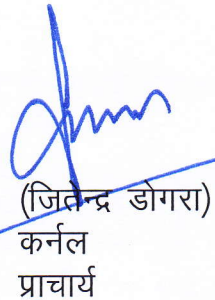 (जितेन्द्र डोगरा)
कर्नल
प्राचार्य